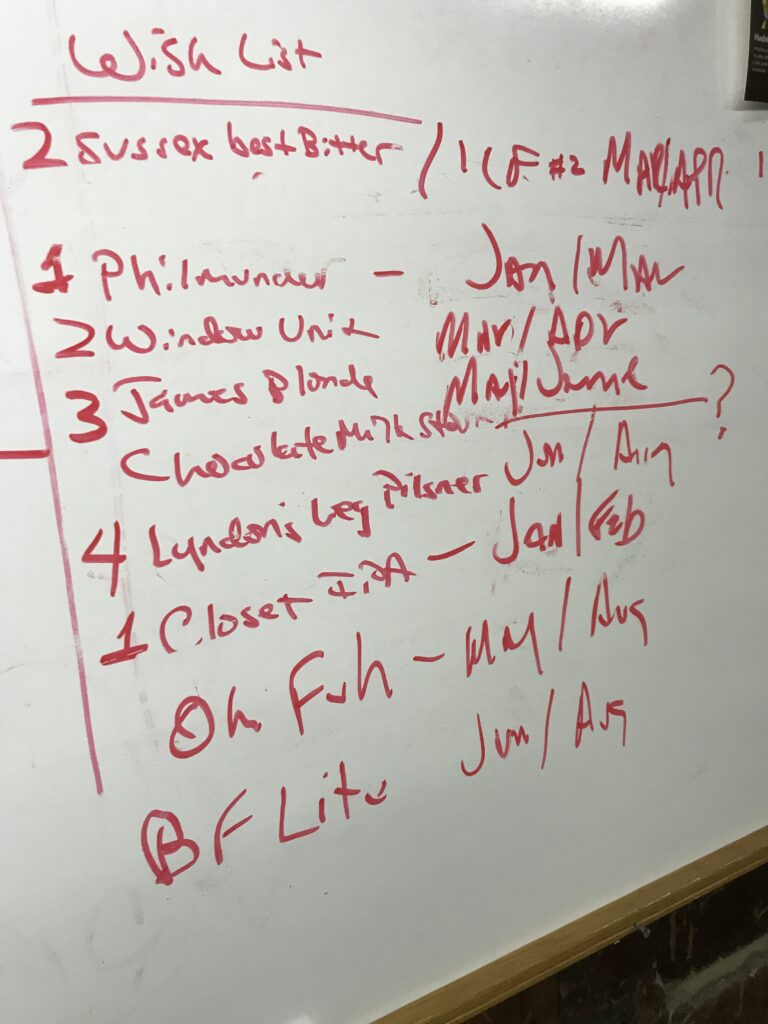 Wish List
2 Sussex best Bitter / 1 CF #2 MAR/APR
1 Philmunder - Jan/Mar
2 Window Unit Mar/APR
3 James Blonde May/June
Chocolate Milk Stout ?
4 Lyndon's Leg Pilsner Jun / Aug
1 Closet I.P.A - Jan/Feb
Oh Fuh - May / Aug
BF Lite Jun/Aug